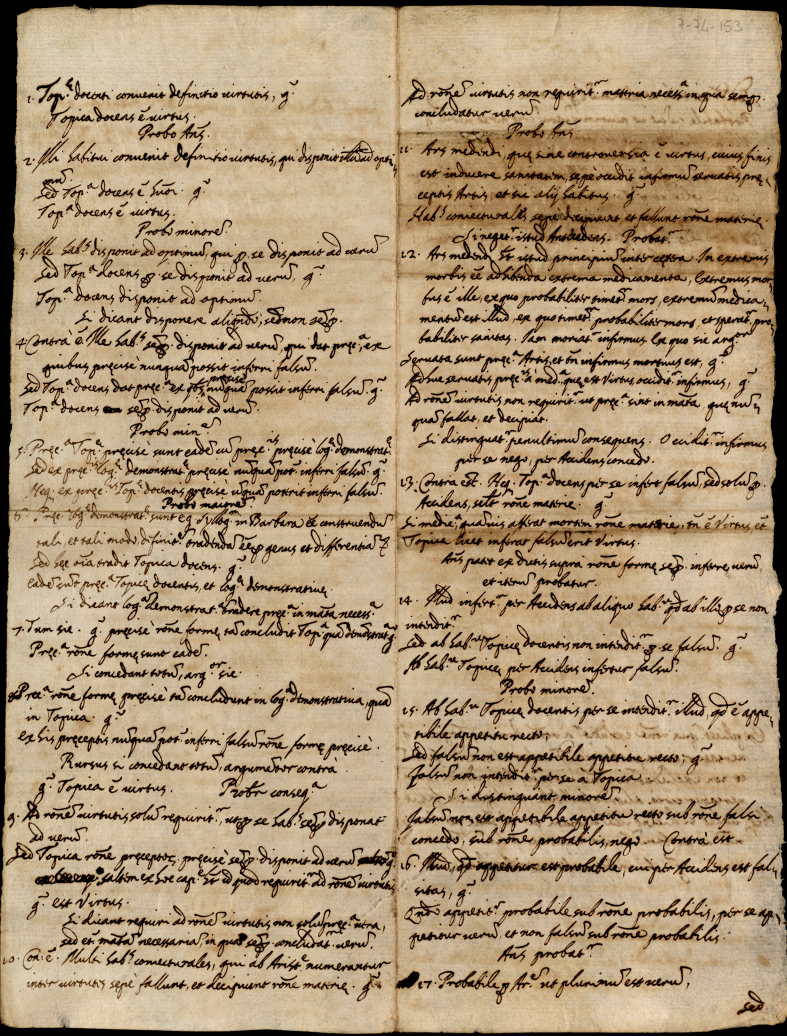 7-74-153
1. Top.ᵃ docenti convenit definitio virtutis, gͦ
Topica docens ẽ virtus.
Probo Anͣs.
2. Illi habitui convenit definitio virtutis, qui disponit ad opti-
mũ.
Sed Top.ᵃ docens ẽ hmõi. gͦ
Top.ᵃ docens ẽ virtus.
Probo minorẽ.
3. Ille hab.ˢ disponit ad optimũ, qui p̱ se disponit ad verũ
Sed Top.ᵃ docens p̱ se disponit ad verũ, gͦ
Top.ᵃ docens disponit ad optimũ.
Si dicant disponere aliqñdo, sed non semp̱.
4. Contra ẽ. Ille hab.ˢ semp̱ disponit ad verũ, qui dat prec.ᵃ, ex
quibus precisè nunquã possit inferri falsũ.
Sed Top.ᵃ docens dat prec.ᵃ ex qbͥs precisè nũquã possit inferri falsũ. gͦ
Top.ᵃ docens semp̱ disponit ad verũ.
Probo min.ᵃ
5. Prec.ᵃ Top.ᵃ precisè sunt eadẽ cũ prec.ⁱˢ precisè log.ᵃ demonstrat.
Sed ex prec.ⁱˢ log.ᵃ demonstrat.ᵃ precisè nũquã pot. inferri falsũ. gͦ
Neq. ex prec.ⁱˢ Top.ᵃ docentis precisè ũquã poterit inferri falsũ.
Probo maiorẽ.
6. Prec.ᵃ log.ᵃ demonstrat.ᵃ sunt in Barbara construendũ
tali, et tali modo, definit.ᵃ tradenda ẽ p̱ genus et differentiã
Sed hec oĩa tradit Topica docens. gͦ
eadẽ sunt prec.ᵃ Topice docentis, et log.ᵃ demonstrative.
Si dicant log.ᵃ demonstrat. tradere prec.ᵃ in mãta necess.ᵃ
7. Tum sic. gͦ precisè rõne forme, tã concludit Top.ᵃ quã demõstrat. gͦ
Prec.ᵃ rõne forme sunt eadẽ.
Si concedant totũ, arg.ᵒʳ sic.
8. Prec.ᵃ rõne forme precisè tã concludunt in log.ᵃ demonstrativa, quã
in Topica. gͦ
ex his preceptis nũquã pot. inferri falsũ rõne forme precisè.
Rursus si concedant totũ, argumẽtor contrà.
gͦ Topica ẽ virtus. Probor conseq.ᵃ
9. Ad rõnẽ virtutis solũ requirit.ʳ, ut p̱ se hab.ˢ semp̱ disponat
ad verũ.
Sed Topica rõne preceptor. precisè semp̱ disponit ad verũ
saltem ex hoc cap.ᵉ Et id quod requirit.ʳ ad rõnẽ virtutis
gͦ est Virtus.
Si dicant requiri ad rõnẽ virtutis non solũ prec.ᵃ vera,
sed et mãtã necessariã in quã semp̱ concludat verũ.
10. Con.ᵃ ẽ. Multi hab.ˢ coniecturales, qui ab Arist.ᵉ numerantur
inter virtutes sepè fallunt, et decipiunt rõne materie. gͦ
Ad rõnẽ virtutis non requirit.ʳ materia necess.ᵃ in qua semp̱
concludatur verũ
Probo Anͣs
11. Ars medendi, que sine controversia ẽ virtus, cuius finis
est inducere sanitatem, sepè occidit infirmũ servatis pre-
ceptis Artis, et sic alij habitus. gͦ
Hab.ˢ coniecturales sepè decipiunt et fallunt rõne materie.
Si neget.ʳ istud Antecedens. Probat.ʳ
12. Ars medendi Et istud principium inter cetera. In extremis
morbis ẽ adhibenda extrema medicamenta, Extremus mor-
bus ẽ ille, ex quo probabiliter timet.ʳ mors, extremũ medica-
mentũ est illud ex quo timet.ʳ probabiliter mors, et sperat.ʳ pro-
babiliter sanitas. Iam moriat.ʳ infirmus Ex quo sic arg.ᵒʳ
Servata sunt prec.ᵃ Artis, et tñ infirmus mortuus est, gͦ
Adhuc servatis prec.ⁱˢ à med.ᵃ que est Virtus occidit.ʳ infirmus, gͦ
Ad rõnẽ virtutis non requirit.ʳ ut prec.ᵃ sint in mãta, que nũ-
quã fallat, et decipiat.
Si distinguat.ʳ penultimũ consequens. Occidit.ʳ infirmus
per se nego, per Accidens concedo.
13. Contra Est. Neq. Top.ᵃ docens per se infert falsũ, sed solũ p̱
Accidens, scil.ᵗ rõne materie. gͦ
Si medic.ᵃ quamvis afferat mortem rõne materie, tñ ẽ Virtus et
Topica licet inferat falsũ erit Virtus.
Anͣs patet ex dictis suprà rõne forme semp̱ inferre verũ
et iterũ probatur.
14. Illud infert.ʳ per Accidens ab aliquo hab.ᵘ qd ab illo p̱ se non
intendit.ʳ
Sed ab hab.ᵘ Topice docentis non intendit.ʳ p̱ se falsũ. gͦ
Ab hab.ᵘ Topice per Accidens infertur falsũ.
Probo minorẽ
15. Ab hab.ᵘ Topice docentis per se intendit.ʳ illud, qd ẽ appe-
tibile appetitu recto;
Sed falsũ non est appetibile appetitu recto; gͦ
falsũ non intendit.ʳ per se a Topica
Si distinguant minorẽ
falsũ non est appetibile appetitu recto sub rõne falsi
concedo, sub rõne probabilis, nego. Contrà est.
16. Illud, qd appetitur est probabile, cui per Accidens est fal-
sitas, gͦ
Qñdo appetit.ʳ probabile sub rõne probabilis, per se ap-
petitur verũ, et non falsũ sub rõne probabilis.
Anͣs probat.ʳ
17. Probabile p̱ Ar.ᵐ ut plurimũ est verũ,
sed